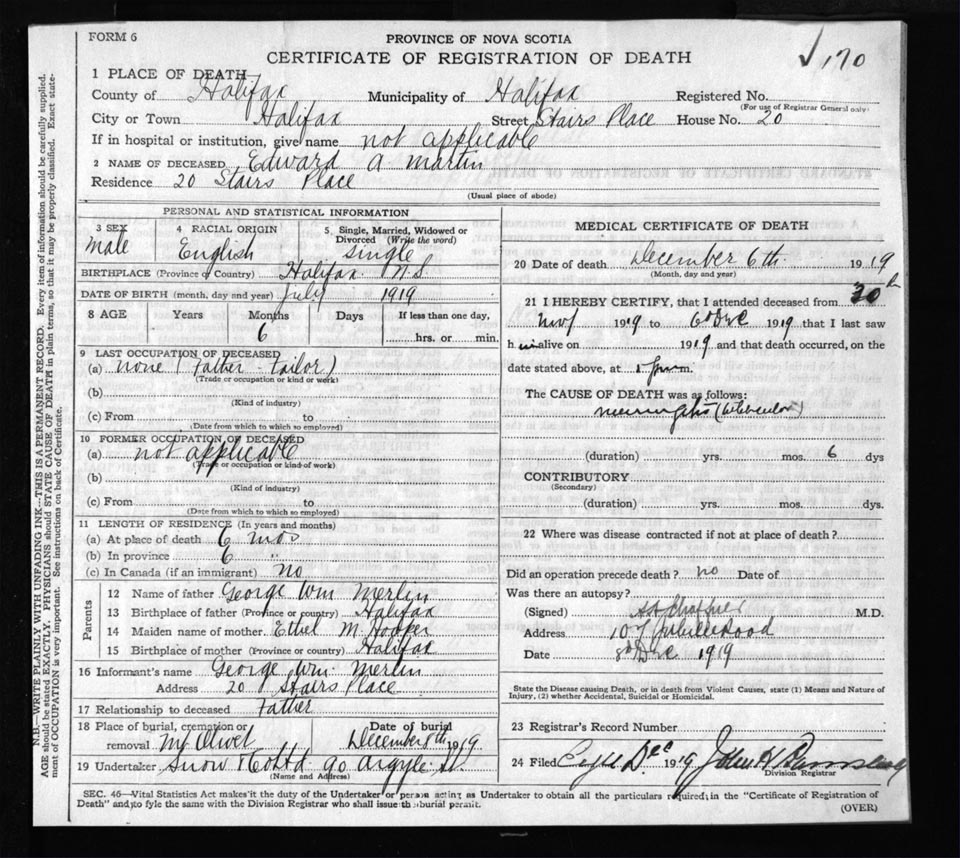 FORM 6
PROVINCE OF NOVA SCOTIA
CERTIFICATE OF REGISTRATION OF DEATH
170
1 PLACE OF DEATH—
County of Halifax Municipality of Halifax Registered No.
(For use of Registrar General only)
City or Town Halifax Street Stairs Place House No. 20
If in hospital or institution, give name not applicable
2 NAME OF DECEASED Edward A Martin
Residence 20 Stairs Place
(Usual place of abode)
PERSONAL AND STATISTICAL INFORMATION
3 SEX 4 RACIAL ORIGIN 5 Single, Married, Widowed or Divorced (Write the word)
Male English single
BIRTHPLACE (Province or Country) Halifax N.S.
DATE OF BIRTH (month, day and year) July 1919
8 AGE Years Months Days If less than one day,
6 hrs. or min.
9 LAST OCCUPATION OF DECEASED
(a) none (Father - tailor)
(Trade or occupation or kind or work)
(b)
(Kind of industry)
(c) From to
(Date from which to which so employed)
10 FORMER OCCUPATION OF DECEASED
(a) not applicable
(Trade or occupation or kind of work)
(b)
(Kind of industry)
(c) From to
(Date from which to which so employed)
11 LENGTH OF RESIDENCE (In years and months)
(a) At place of death 6 mos
(b) In province 6 "
(c) In Canada (if an immigrant) no
Parents
12 Name of father George Wm Merlin
13 Birthplace of father (Province or country) Halifax
14 Maiden name of mother Ethel M. Hooper
15 Birthplace of mother (Province or country) Halifax
16 Informant's name George Wm. Merlin
Address 20 Stairs Place
17 Relationship to deceased Father
18 Place of burial, cremation or Date of burial
removal Mt Olivet December 8th 1919
19 Undertaker Snow & Co Ltd. 90 Argyle St.
(Name and Address)
MEDICAL CERTIFICATE OF DEATH
20 Date of death December 6th. 1919
(Month, day and year)
21 I HEREBY CERTIFY, that I attended deceased from 30th
Nov 1919 to 6th Dec 1919 that I last saw
him alive on 1919 and that death occurred, on the
date stated above, at m.
The CAUSE OF DEATH was as follows:
meningitis (tubercular)
(duration) yrs. mos. 6 dys
CONTRIBUTORY
(Secondary)
(duration) yrs. mos. dys.
22 Where was disease contracted if not at place of death?
Did an operation precede death? no Date of
Was there an autopsy?
(Signed) M.D.
Address 107 Jubilee Road
Date 8th Dec 1919
State the Disease causing Death, or in death from Violent Causes, state (1) Means and Nature of
Injury, (2) whether Accidental, Suicidal or Homicidal.
23 Registrar's Record Number
24 Filed Dec 1919 John H
Division Registrar
SEC. 46—Vital Statistics Act makes it the duty of the Undertaker or person acting as Undertaker to obtain all the particulars required in the "Certificate of Registration of
Death" and to fyle the same with the Division Registrar who shall issue the burial permit.
(OVER)
N.B.—WRITE PLAINLY WITH UNFADING INK—THIS IS A PERMANENT RECORD. Every item of information should be carefully supplied.
AGE should be stated EXACTLY. PHYSICIANS should STATE CAUSE OF DEATH in plain terms, so that it may be properly classified. Exact state-
ment of OCCUPATION is very important. See instructions on back of Certificate.